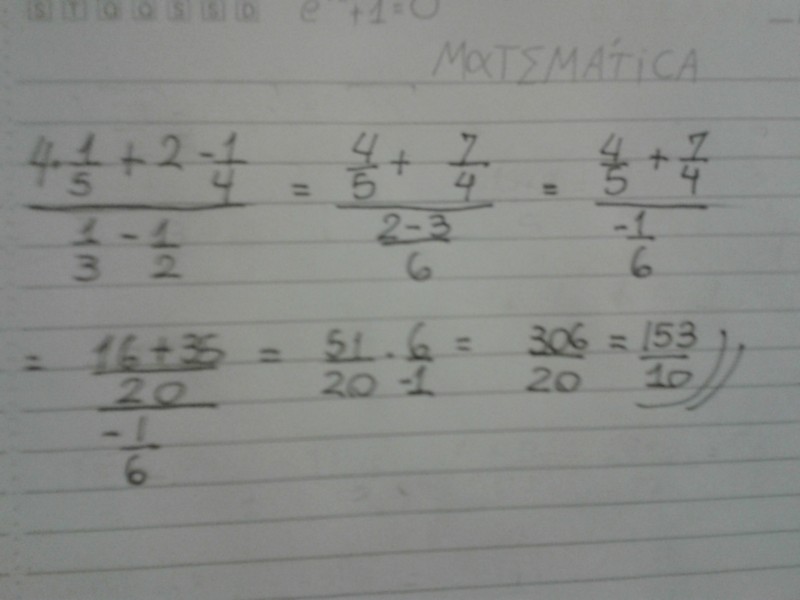 S T Q Q S S D e +1=0
MαTΣMÁTiCA
4·1/5 + 2 - 1/4 / 1/3 - 1/2 = 4/5 + 7/4 / 2-3/6 = 4/5 + 7/4 / -1/6
= 16+35/20 / -1/6 = 51/20 · 6/-1 = 306/20 = 153/10 //.